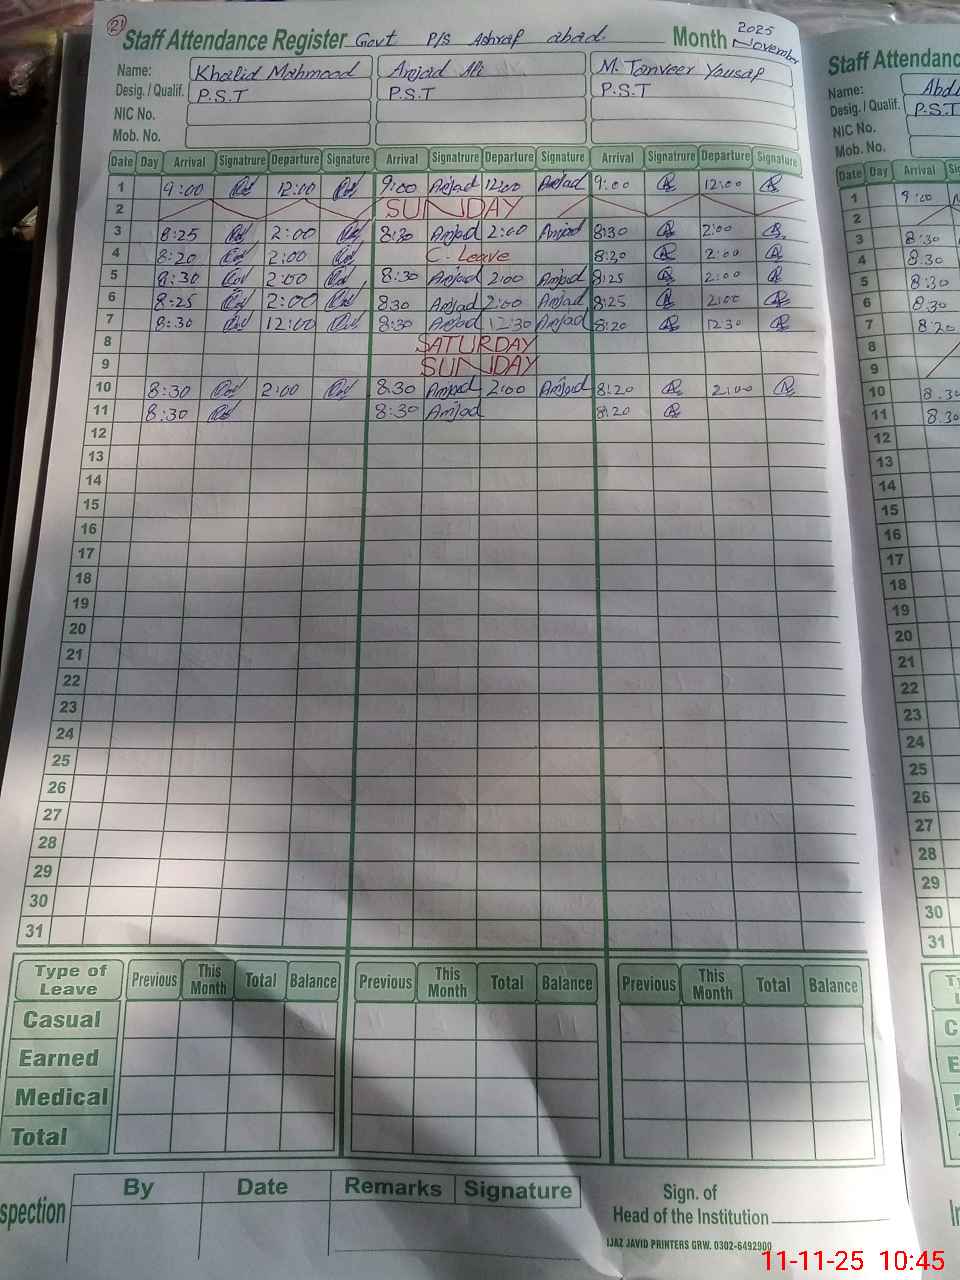 21 Staff Attendance Register Govt P/S Ashraf abad. Month November 2025
Name: Khalid Mahmood Amjad Ali M. Tanveer Yousaf
Desig. / Qualif. P.S.T P.S.T P.S.T
NIC No.
Mob. No.
Date Day Arrival Signatrure Departure Signature Arrival Signatrure Departure Signature Arrival Signatrure Departure Signature
1 9:00 12:00 9:00 Amjad 12:00 Amjad 9:00 12:00
2 SUNDAY
3 8:25 2:00 8:30 Amjad 2:00 Amjad 8:30 2:00
4 8:20 2:00 C. Leave 8:20 2:00
5 8:30 2:00 8:30 Amjad 2:00 Amjad 8:25 2:00
6 8:25 2:00 8:30 Amjad 2:00 Amjad 8:25 2:00
7 8:30 12:00 8:30 Amjad 12:30 Amjad 8:20 12:30
8 SATURDAY
9 SUNDAY
10 8:30 2:00 8:30 Amjad 2:00 Amjad 8:20 2:00
11 8:30 8:30 Amjad 8:20
12
13
14
15
16
17
18
19
20
21
22
23
24
25
26
27
28
29
30
31
Type of Leave Previous This Month Total Balance Previous This Month Total Balance Previous This Month Total Balance
Casual
Earned
Medical
Total
spection By Date Remarks Signature
Sign. of
Head of the Institution
IJAZ JAVID PRINTERS GRW. 0302-6492900
Staff Attendanc
Name: Abdu
Desig. / Qualif. P.S.T
NIC No.
Mob. No.
Date Day Arrival
1 9:00
2
3 8:30
4 8:30
5 8:30
6 8:30
7 8:20
8
9
10 8:30
11 8:30
12
13
14
15
16
17
18
19
20
21
22
23
24
25
26
27
28
29
30
31
11-11-25 10:45